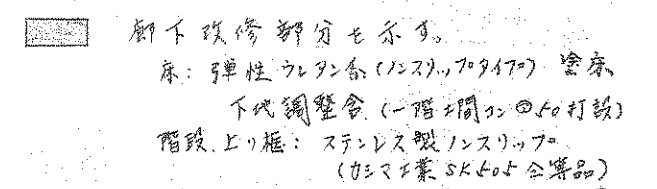 廊下改修部分を示す。
床：弾性ウレタン系(ノンスリップタイプ) 塗床、
下地調整含 (一階土間コン㋐50打設)
階段、上り框：ステンレス製ノンスリップ
(カシマ工業 SK505 同等品)